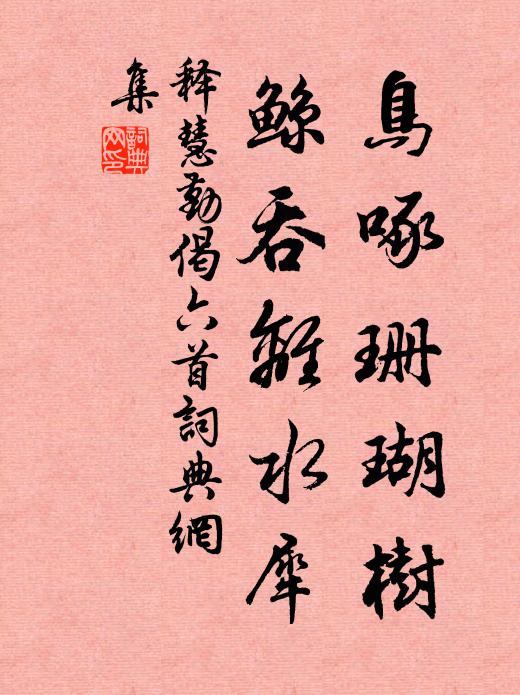 鳥啄珊瑚樹
鯨吞離水犀
释慧勤偈六首詞典網
集
詞典網印